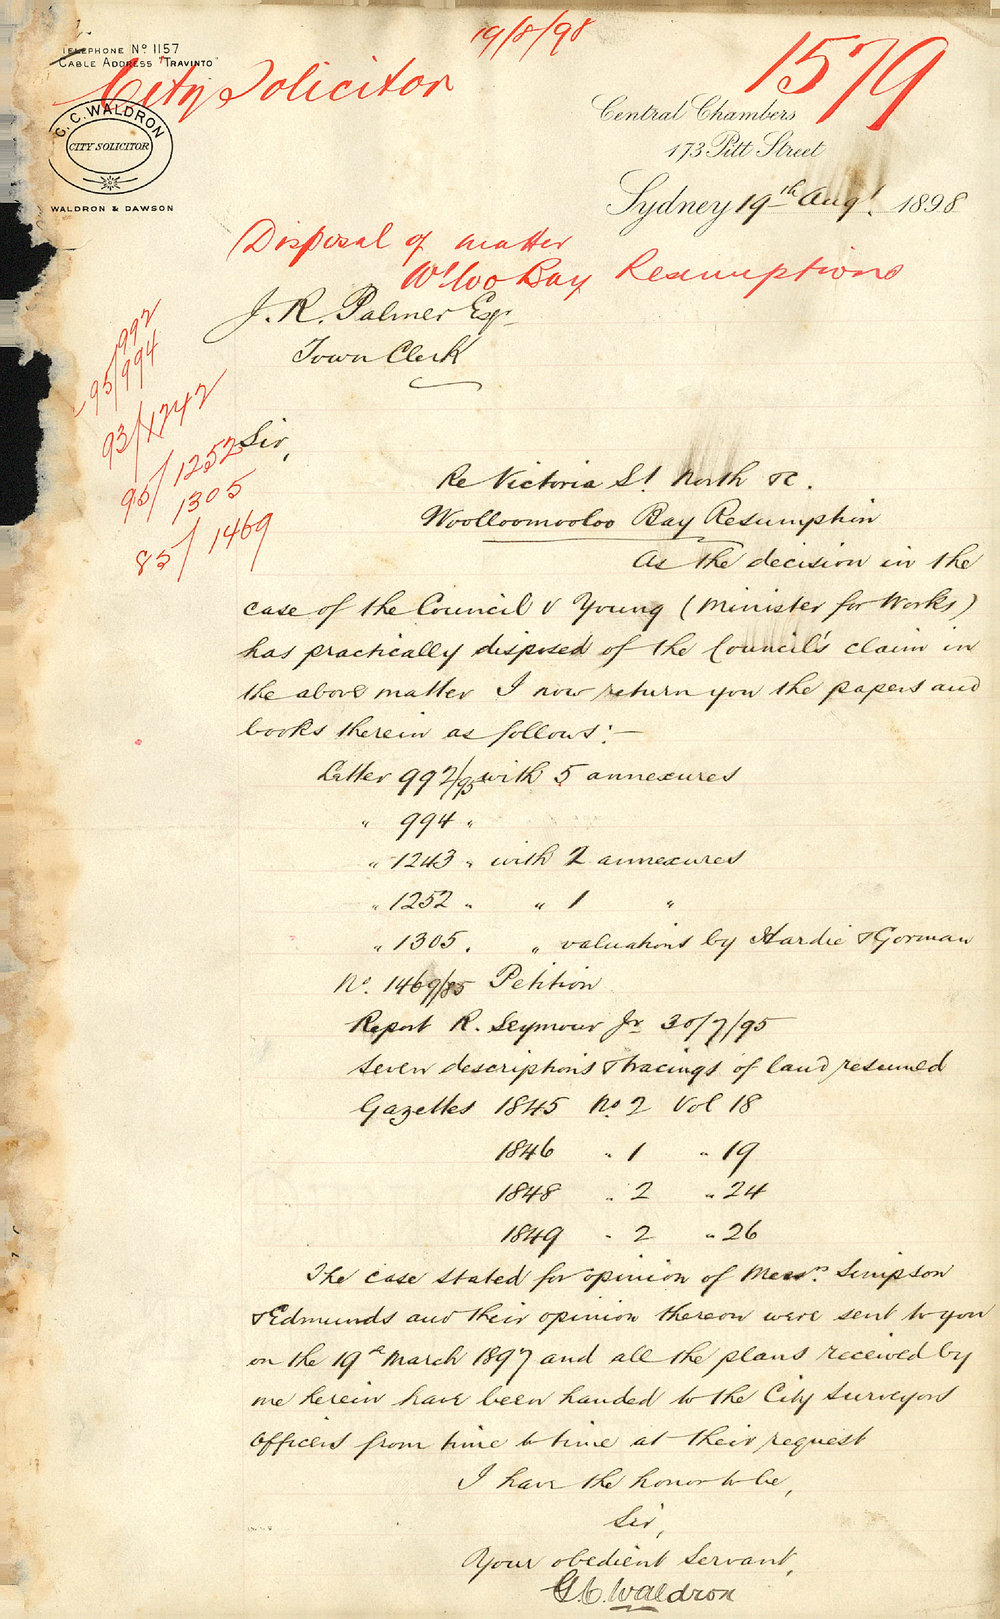 19/8/98
1579
TELEPHONE No 1157
CABLE ADDRESS "TRAVINTO"
City Solicitor
G. C. WALDRON
CITY SOLICITOR
WALDRON & DAWSON
Central Chambers
173 Pitt Street
Sydney 19th Augt. 1898
Disposal of matter
W'loo Bay Resumptions
J. R. Palmer Esqr
Town Clerk
992
95/994
93/1242
95/1252
1305
85/1469
Sir,
Re Victoria St. North &c.
Woolloomooloo Bay Resumption
As the decision in the
case of the Council v Young (Minister for Works)
has practically disposed of the Council's claim in
the above matter I now return you the papers and
books therein as follows:—
Letter 992/95 with 5 annexures
" 994 "
" 1243 " with 2 annexures
" 1252 " " 1 "
" 1305 . " valuations by Hardie & Gorman
No. 1469/85 Petition
Report R. Seymour Jr 30/7/95
Seven descriptions & tracings of land resumed
Gazettes 1845 No. 2 Vol 18
1846 " 1 " 19
1848 " 2 " 24
1849 " 2 " 26
The case stated for opinion of Messrs. Simpson
& Edmunds and their opinion thereon were sent to you
on the 19th March 1897 and all the plans received by
me herein have been handed to the City Surveyors
Officers from time to time at their request
I have the honor to be,
Sir,
Your obedient Servant,
G. C. Waldron